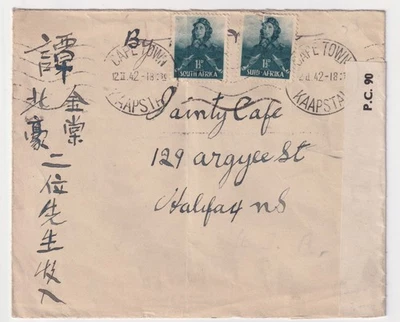 By
CAPE TOWN
12.II.42-18
KAAPSTA
1½D
SOUTH AFRICA
1½D
SOUTH AFRICA
CAPE TOWN
II.42-18
KAAPSTA
P.C. 90
Dainty Cafe
129 argyee St
Halifax NS
譚
金棠
北豪
二位先生收入